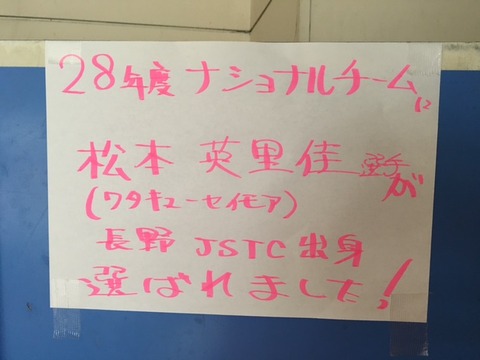 28年度ナショナルチームに
松本 英里佳 選手が
(ワタキューセイモア)
長野 JSTC 出身
選ばれました!